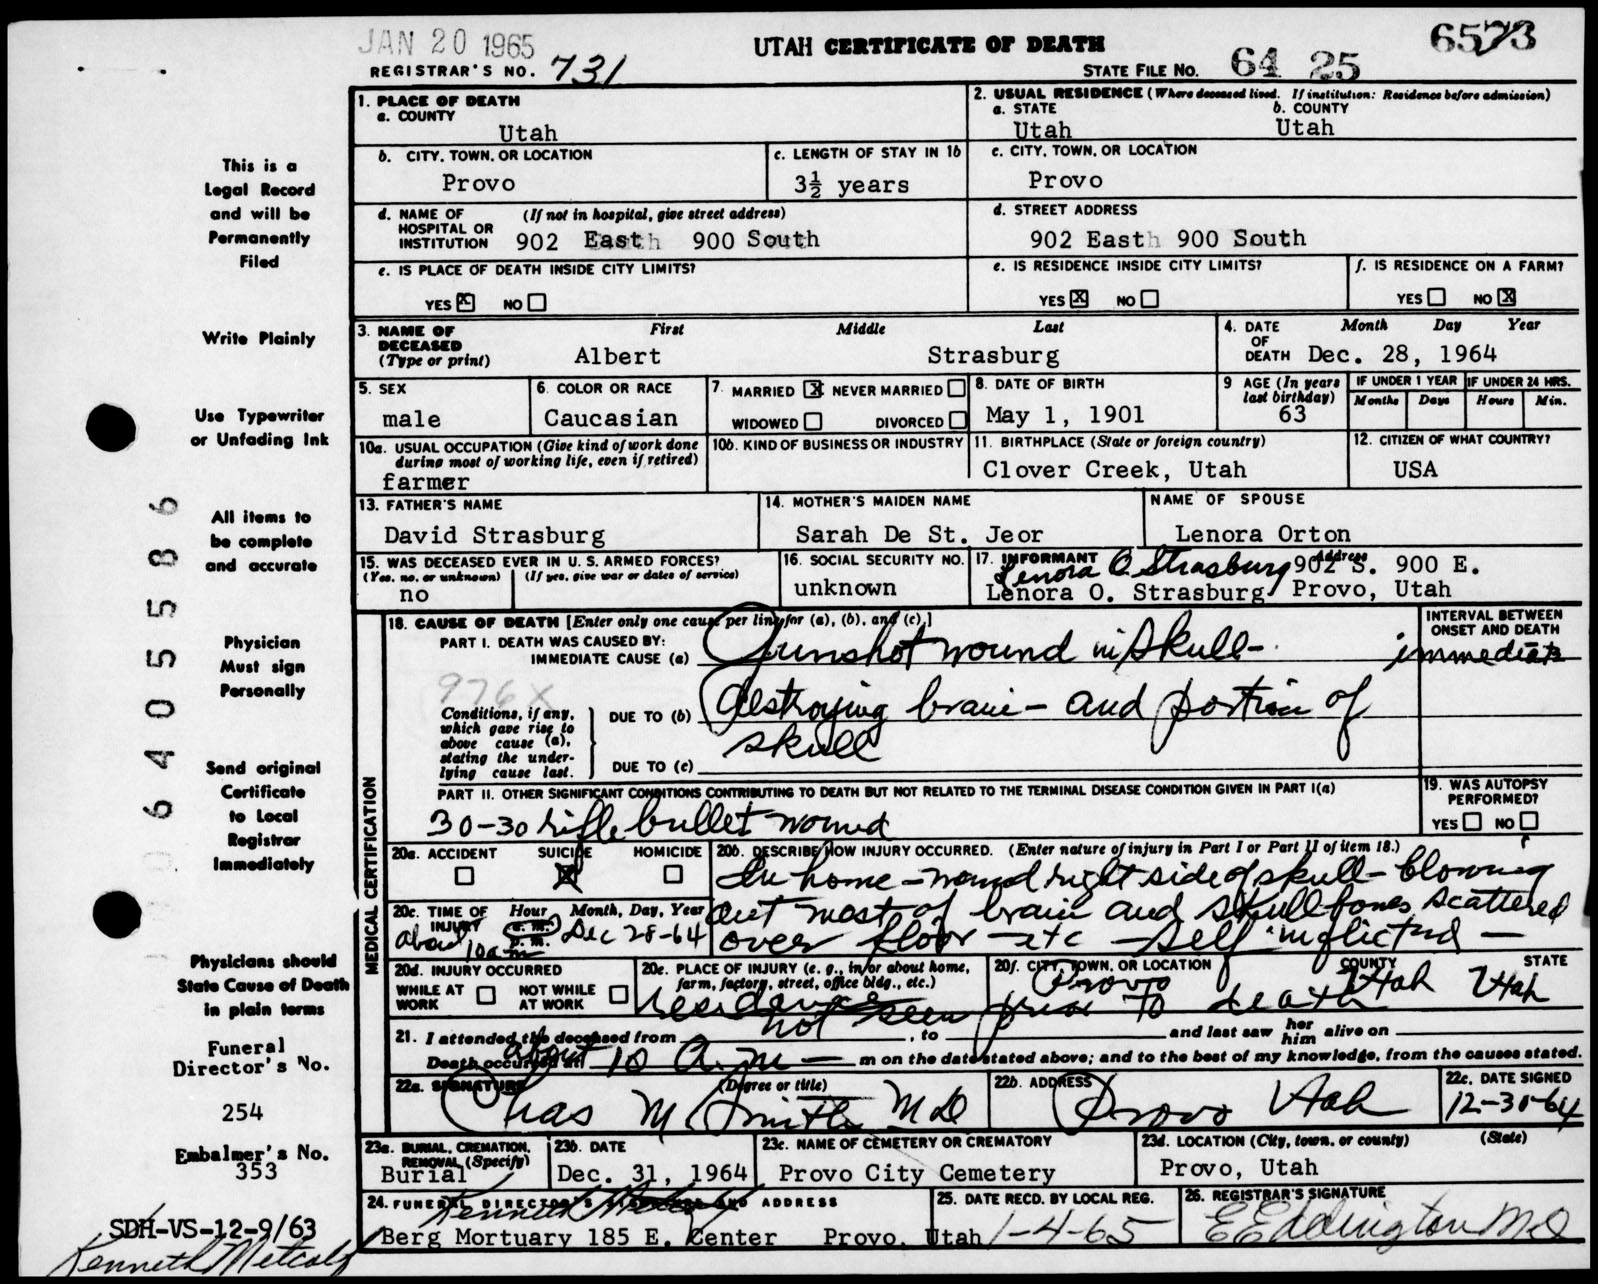 JAN 20 1965
UTAH CERTIFICATE OF DEATH
6573
REGISTRAR'S NO. 731
STATE FILE NO. 64 25
1. PLACE OF DEATH
a. COUNTY
Utah
2. USUAL RESIDENCE (Where deceased lived. If institution: Residence before admission)
a. STATE b. COUNTY
Utah Utah
b. CITY, TOWN, OR LOCATION
Provo
c. LENGTH OF STAY IN 1b
3½ years
c. CITY, TOWN, OR LOCATION
Provo
d. NAME OF (If not in hospital, give street address)
HOSPITAL OR
INSTITUTION 902 East 900 South
d. STREET ADDRESS
902 East 900 South
e. IS PLACE OF DEATH INSIDE CITY LIMITS?
YES X NO
e. IS RESIDENCE INSIDE CITY LIMITS?
YES X NO
f. IS RESIDENCE ON A FARM?
YES NO X
3. NAME OF First Middle Last
DECEASED
(Type or print) Albert Strasburg
4. DATE Month Day Year
OF
DEATH Dec. 28, 1964
5. SEX
male
6. COLOR OR RACE
Caucasian
7. MARRIED X NEVER MARRIED
WIDOWED DIVORCED
8. DATE OF BIRTH
May 1, 1901
9 AGE (In years
last birthday)
63
IF UNDER 1 YEAR IF UNDER 24 HRS.
Months Days Hours Min.
10a. USUAL OCCUPATION (Give kind of work done
during most of working life, even if retired)
farmer
10b. KIND OF BUSINESS OR INDUSTRY
11. BIRTHPLACE (State or foreign country)
Clover Creek, Utah
12. CITIZEN OF WHAT COUNTRY?
USA
13. FATHER'S NAME
David Strasburg
14. MOTHER'S MAIDEN NAME
Sarah De St. Jeor
NAME OF SPOUSE
Lenora Orton
15. WAS DECEASED EVER IN U. S. ARMED FORCES?
(Yes, no, or unknown) (If yes, give war or dates of service)
no
16. SOCIAL SECURITY NO.
unknown
17. INFORMANT Address
Lenora O. Strasburg 902 S. 900 E.
Lenora O. Strasburg Provo, Utah
18. CAUSE OF DEATH [Enter only one cause per line for (a), (b), and (c).]
PART I. DEATH WAS CAUSED BY:
IMMEDIATE CAUSE (a) Gunshot wound in skull-
INTERVAL BETWEEN
ONSET AND DEATH
immediate
976X
Conditions, if any,
which gave rise to
above cause (a),
stating the under-
lying cause last.
DUE TO (b) destroying brain - and portion of
skull
DUE TO (c)
PART II. OTHER SIGNIFICANT CONDITIONS CONTRIBUTING TO DEATH BUT NOT RELATED TO THE TERMINAL DISEASE CONDITION GIVEN IN PART I(a)
30-30 rifle bullet wound
19. WAS AUTOPSY
PERFORMED?
YES NO
20a. ACCIDENT SUICIDE HOMICIDE
X
20b. DESCRIBE HOW INJURY OCCURRED. (Enter nature of injury in Part I or Part II of item 18.)
In home - wound right side of skull - blowing
out most of brain and skull bones scattered
over floor - etc - self inflicted -
20c. TIME OF Hour Month, Day, Year
INJURY a. m.
p. m.
about 10 am Dec 28-64
20d. INJURY OCCURRED
WHILE AT NOT WHILE
WORK AT WORK
20e. PLACE OF INJURY (e. g., in or about home,
farm, factory, street, office bldg., etc.)
residence
20f. CITY, TOWN, OR LOCATION COUNTY STATE
Provo Utah Utah
not seen prior to death
21. I attended the deceased from , to and last saw her him alive on
Death occurred at about 10 A.m - m on the date stated above; and to the best of my knowledge, from the causes stated.
22a. SIGNATURE (Degree or title)
Chas M Smith MD
22b. ADDRESS
Provo Utah
22c. DATE SIGNED
12-30-64
23a. BURIAL, CREMATION,
REMOVAL (Specify)
Burial
23b. DATE
Dec. 31, 1964
23c. NAME OF CEMETERY OR CREMATORY
Provo City Cemetery
23d. LOCATION (City, town, or county) (State)
Provo, Utah
24. FUNERAL DIRECTOR'S AND ADDRESS
Berg Mortuary 185 E. Center Provo, Utah
25. DATE RECD. BY LOCAL REG.
1-4-65
26. REGISTRAR'S SIGNATURE
E Eddington MD
MEDICAL CERTIFICATION
This is a
Legal Record
and will be
Permanently
Filed
Write Plainly
Use Typewriter
or Unfading Ink
All items to
be complete
and accurate
Physician
Must sign
Personally
Send original
Certificate
to Local
Registrar
Immediately
Physicians should
State Cause of Death
in plain terms
Funeral
Director's No.
254
Embalmer's No.
353
SDH-VS-12-9/63
Kenneth Metcalf
64055586